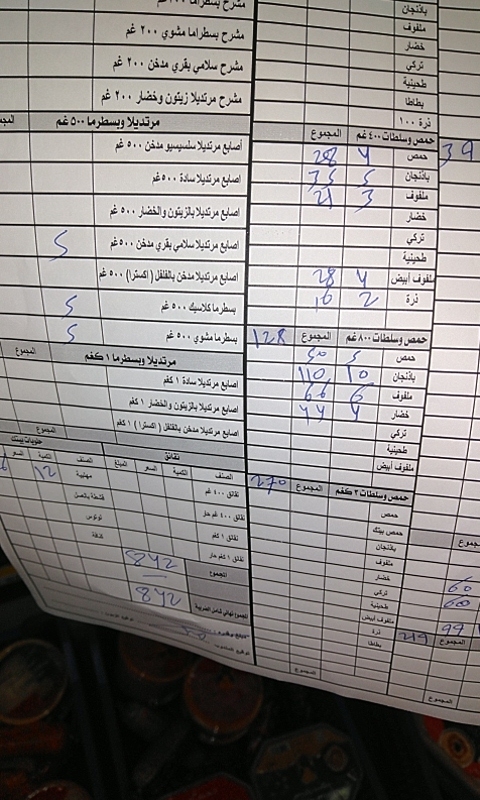 باذنجان
ملفوف
خضار
تركي
طحينية
بطاطا
ذرة ١٠٠
حمص وسلطات ٤٠٠ غم المجموع 39
حمص 4 28
باذنجان 5 35
ملفوف 3 21
خضار
تركي
طحينية
ملفوف أبيض 4 28
ذرة 2 16
حمص وسلطات ٨٠٠ غم المجموع 128
حمص 5 50
باذنجان 10 110
ملفوف 6 66
خضار 4 44
تركي
طحينية
ملفوف أبيض
حمص وسلطات ٢ كغم المجموع 270
حمص
حمص بيتك
باذنجان
ملفوف
خضار
تركي
طحينية
ملفوف أبيض
ذرة
بطاطا
المجموع
60
600
99
المجموع 219
المجموع
مشرح بسطراما مشوي ٢٠٠ غم
مشرح سلامي بقري مدخن ٢٠٠ غم
مشرح مرتديلا زيتون وخضار ٢٠٠ غم
مرتديلا وبسطرما ٥٠٠ غم
أصابع مرتديلا سلسيسيو مدخن ٥٠٠ غم
اصابع مرتديلا سادة ٥٠٠ غم
اصابع مرتديلا بالزيتون والخضار ٥٠٠ غم
اصابع مرتديلا سلامي بقري مدخن ٥٠٠ غم 5
اصابع مرتديلا مدخن بالفلفل ( اكسترا) ٥٠٠ غم
بسطرما كلاسيك ٥٠٠ غم 5
بسطرما مشوي ٥٠٠ غم 5
مرتديلا وبسطرما ١ كغم المجموع
اصابع مرتديلا سادة ١ كغم
اصابع مرتديلا بالزيتون والخضار ١ كغم
اصابع مرتديلا مدخن بالفلفل ( اكسترا ) ١ كغم
المجموع
نقانق حلويات بيتك
الصنف الكمية السعر المبلغ الصنف الكمية السعر
نقانق ٤٠٠ غم مهلبية 12
نقانق ٤٠٠ غم حار
نقانق ١ كغم
نقانق ١ كغم حار
المجموع 842
المجموع نهائي شامل الضريبة 842